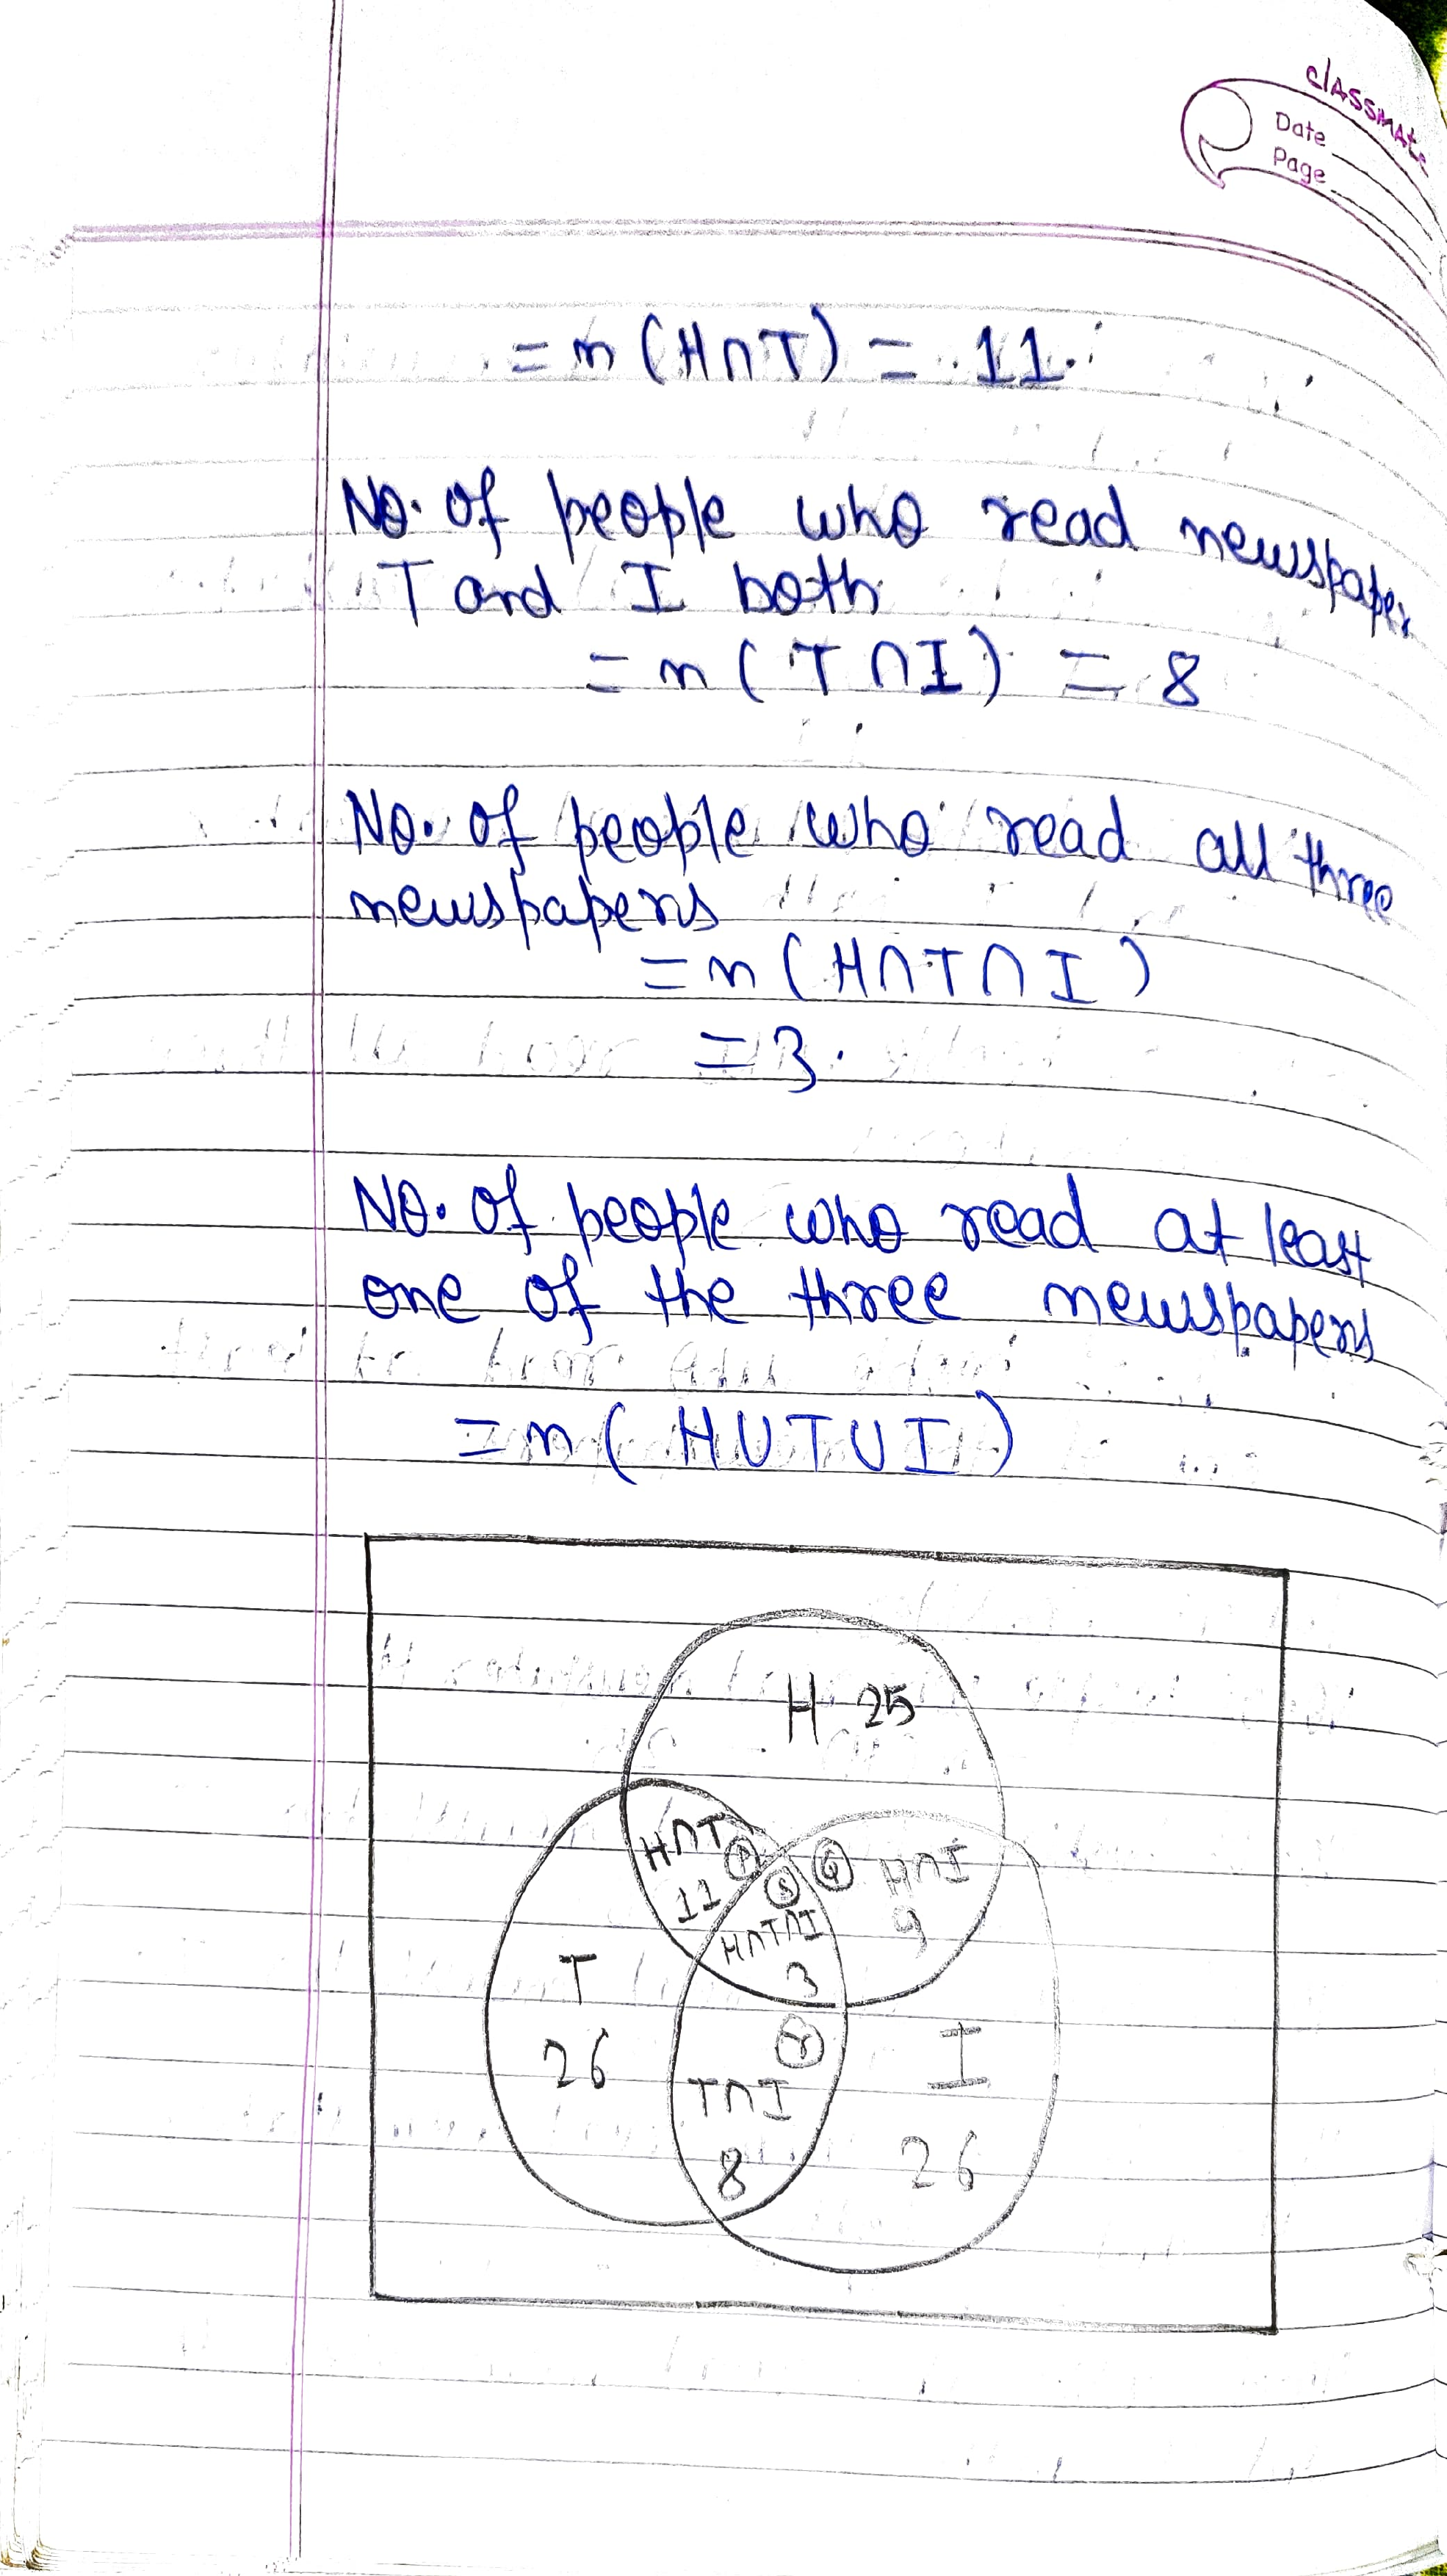 classmate
Date
Page
= n (H∩T) = 11.
No. of people who read newspaper
T and I both
= n ( T ∩ I ) = 8
No. of people who read all three
newspapers
= n ( H ∩ T ∩ I )
= 3.
No. of people who read at least
one of the three newspapers
= n ( H U T U I )
H 25
H∩T
11
S
H∩I
9
H∩T∩I
3
T
26
r
T∩I
8
I
26